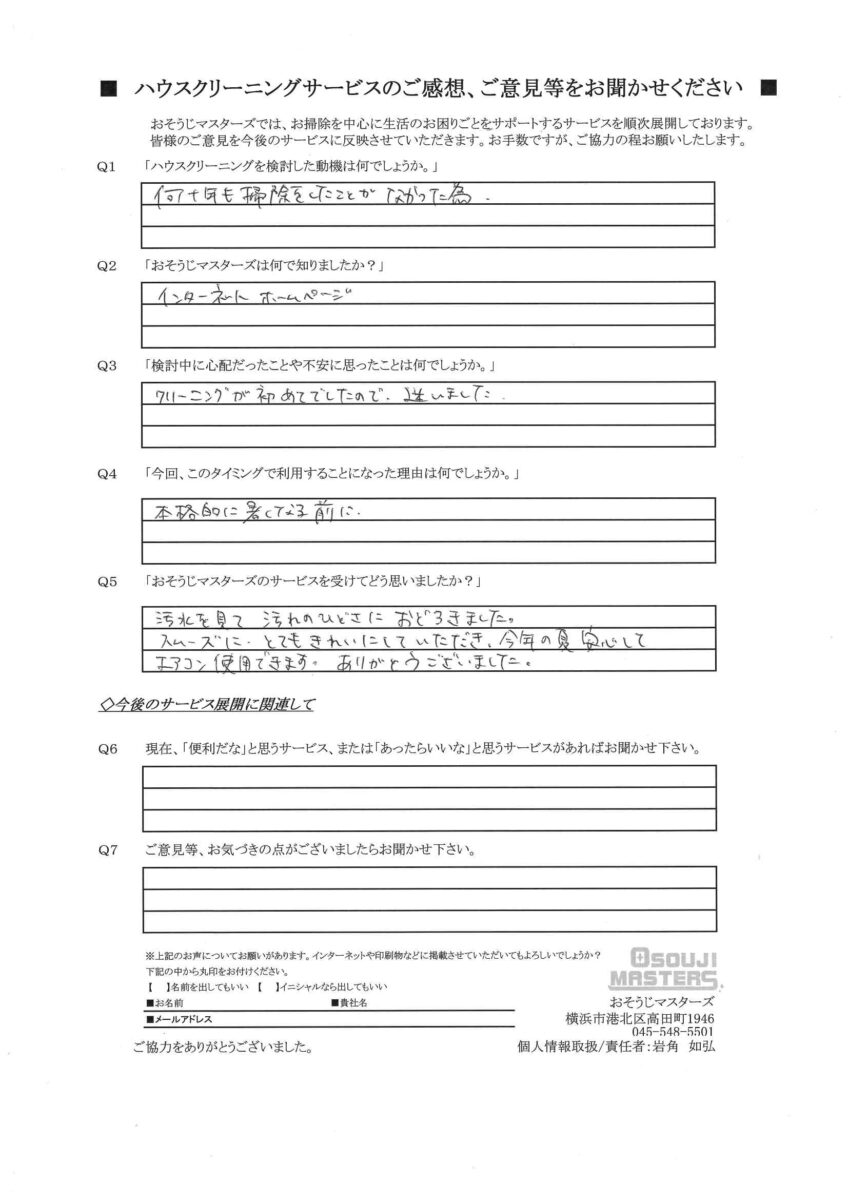 ■ ハウスクリーニングサービスのご感想、ご意見等をお聞かせください ■
おそうじマスターズでは、お掃除を中心に生活のお困りごとをサポートするサービスを順次展開しております。
皆様のご意見を今後のサービスに反映させていただきます。お手数ですが、ご協力の程お願いしたします。
Q1 「ハウスクリーニングを検討した動機は何でしょうか。」
何十年も掃除をしたことがなかった為.
Q2 「おそうじマスターズは何で知りましたか？」
インターネット ホームページ
Q3 「検討中に心配だったことや不安に思ったことは何でしょうか。」
クリーニングが初めてでしたので、迷いました.
Q4 「今回、このタイミングで利用することになった理由は何でしょうか。」
本格的に暑くなる前に.
Q5 「おそうじマスターズのサービスを受けてどう思いましたか？」
汚水を見て 汚れのひどさに おどろきました。
スムーズに、とてもきれいにしていただき、今年の夏安心して
エアコン使用できます。 ありがとうございました。
◇今後のサービス展開に関連して
Q6 現在、「便利だな」と思うサービス、または「あったらいいな」と思うサービスがあればお聞かせ下さい。
Q7 ご意見等、お気づきの点がございましたらお聞かせ下さい。
※上記のお声についてお願いがあります。インターネットや印刷物などに掲載させていただいてもよろしいでしょうか？
下記の中から丸印をお付けください。
【　】名前を出してもいい 【　】イニシャルなら出してもいい
■お名前 ■貴社名
■メールアドレス
ご協力をありがとうございました。
OSOUJI
MASTERS
おそうじマスターズ
横浜市港北区高田町1946
045-548-5501
個人情報取扱/責任者：岩角 如弘